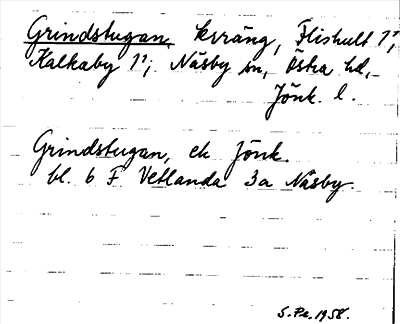 Grindstugan, kvräng, Flishult 1¹,
Kalkaby 1¹; Näsby sn, Östra hd,
Jönk. l.
Grindstugan, ek Jönk.
bl. 6 F Vetlanda 3a Näsby.
S.Pe. 1958.